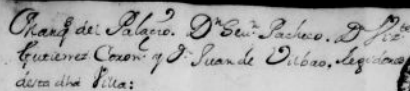 de Palacio. Dn Seun Pacheco. Dn
Gutierrez Coronl y Dn Juan de Vilbao, Regidores
desta dha Villa: